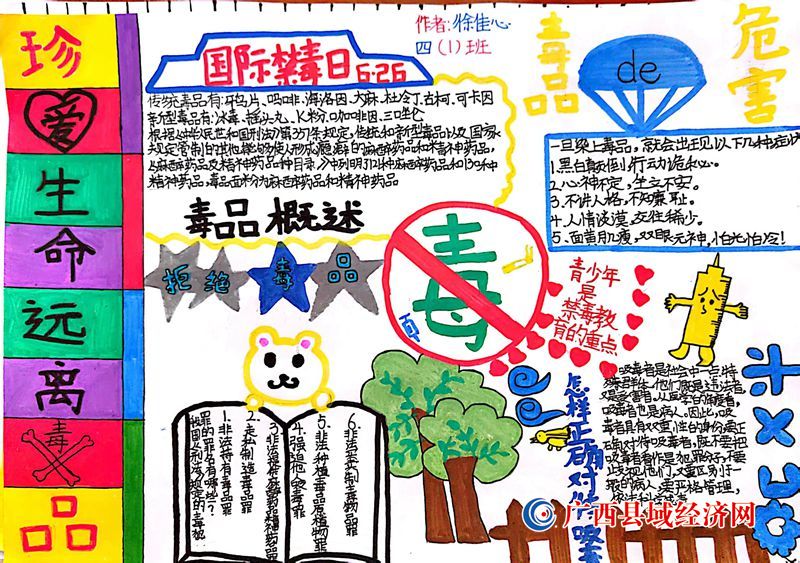 珍
爱
生
命
远
离
毒
品
国际禁毒日6·26
作者:徐佳心
四(1)班
毒品
de
危害
传统毒品有:牙鸟片、吗啡、海洛因、大麻、杜冷丁、古柯、可卡因
新型毒品有:冰毒、摇头丸、K粉、咖啡因、三唑仑
根据《中华人民共和国刑法》第357条规定,传统和新型毒品以及国家
规定管制的其他能够使人形成瘾癖的麻醉药品和精神药品
精神药品,毒品面粉为麻醉药品和精神药品
一旦染上毒品,就会出现以下几种症状
1.黑白颠倒,行动诡秘。
2.心神不定,坐立不安。
3.不讲人格,不知廉耻。
4.人情淡漠,交往稀少。
5.面黄肌瘦,双眼无神,怕光怕冷!
毒品概述
拒绝毒品
毒
青少年
是
禁毒教
育的重点
我国刑法规定的毒品犯
罪的罪名有哪些?
1.非法持有毒品罪
2.走私制造毒品罪
4.强迫他人吸毒罪
5.非法种植毒品原植物罪
怎样正确对待吸毒
吸毒者是社会中一自特
殊群生,他们既是违法者,
又是受害者,从医学的角度看,
吸毒者也是病人。因此,吸
毒者具有双重性的身份,要正
确对待吸毒者,既不要把
止歧视他们,又要区别于一
般的病人,要严格管理,
广西县域经济网